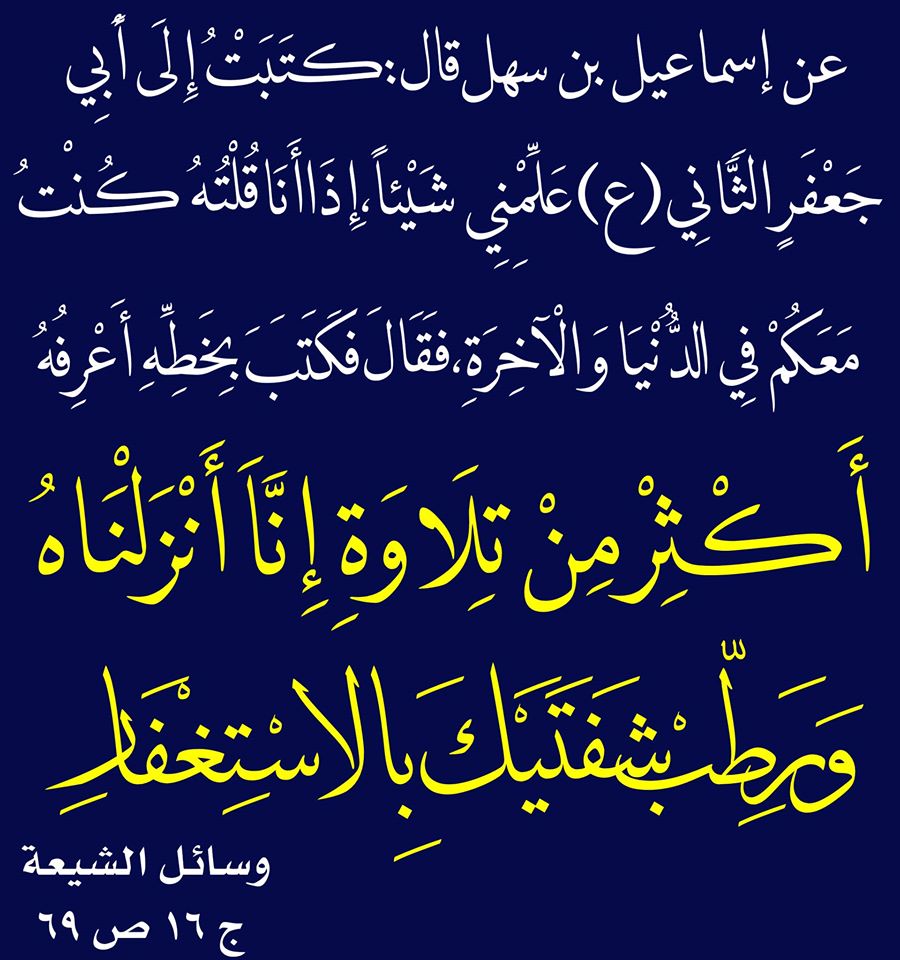 عن إسماعيل بن سهل قال: كتَبَتْ ُإِلَى أَبِي
جَعْفَرٍ الثَّانِي (ع) عَلِّمْنِي شَيْئاً، إِذَا أَنَا قُلْتُهُ كُنْتُ
مَعَكُمْ فِي الدُّنْيَا وَ الْآخِرَةِ، فَقَالَ فَكَتَبَ بِخَطِّهِ أَعْرِفُهُ
أَكْثِرْ مِنْ تِلَاوَةِ إِنَّا أَنْزَلْنَاهُ
وَرَطِّبْ شَفَتَيْكَ بِالاسْتِغْفَارِ
وسائل الشيعة
ج ١٦ ص ٦٩